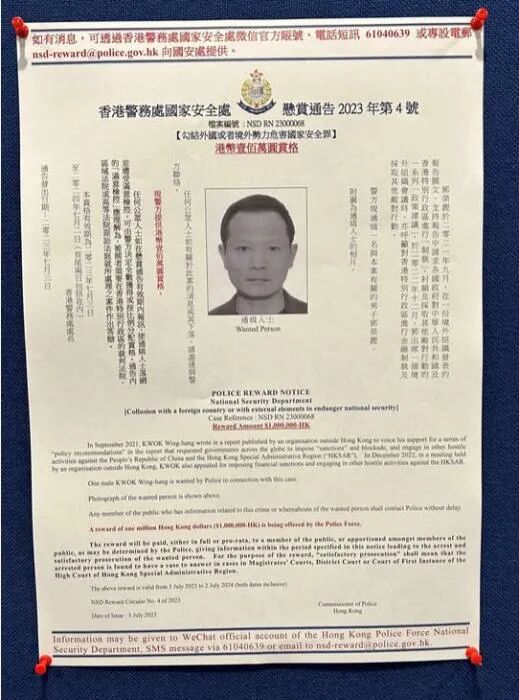 如有消息，可透過香港警務處國家安全處微信官方賬號、電話短訊 61040639 或專設電郵
nsd-reward@police.gov.hk 向國安處提供。
香港警務處國家安全處 懸賞通告 2023 年第 4 號
檔案編號 : NSD RN 23000068
【勾結外國或者境外勢力危害國家安全罪】
港幣壹佰萬圓賞格
郭榮鏗於二零二一年九月，在一份境外組織發表的
報告撰文，支持報告中請求各國政府對中華人民共和國及
香港特別行政區進行「制裁」、封鎖及採取其他敵對行動的
一系列「政策建議」。於二零二二年十二月，郭出席一個境
外組織會議時，亦呼籲對香港特別行政區進行金融制裁及
採取其他敵對行動。
警方現通緝一名與本案有關的男子郭榮鏗。
附圖為通緝人士的相片。
任何公眾人士如有關於此案的消息或其下落，請盡速與警
方聯絡。
現警方提供港幣壹佰萬圓賞格。
任何公眾人士如在懸賞通告有效期內報訊，使通緝人士落網
並遭受滿意檢控，可由警方決定全數獲得或按比例分配賞格。通告內
的「滿意檢控」應理解為，被捕者需要在香港特別行政區的裁判法院、
區域法院或高等法院原訟法庭就所處理之案件作出答辯。
本賞格有效期為二零二三年七月三日
至二零二四年七月二日（首尾兩日包括在內）
香港警務處處長
通告發出日期：二零二三年七月三日
通緝人士
Wanted Person
POLICE REWARD NOTICE
National Security Department
[Collusion with a foreign country or with external elements to endanger national security]
Case Reference : NSD RN 23000068
Reward Amount $1,000,000-HK
In September 2021, KWOK Wing-hang wrote in a report published by an organisation outside Hong Kong to voice his support for a series of
"policy recommendations" in the report that requested governments across the globe to impose "sanctions" and blockade, and engage in other hostile
activities against the People's Republic of China and the Hong Kong Special Administrative Region ("HKSAR"). In December 2022, in a meeting held
by an organisation outside Hong Kong, KWOK also appealed for imposing financial sanctions and engaging in other hostile activities against the HKSAR.
One male KWOK Wing-hang is wanted by Police in connection with this case.
Photograph of the wanted person is shown above.
Any member of the public who has information related to this crime or whereabouts of the wanted person shall contact Police without delay.
A reward of one million Hong Kong dollars ($1,000,000-HK) is being offered by the Police Force.
The reward will be paid, either in full or pro-rata, to a member of the public, or apportioned amongst members of the
public, as may be determined by the Police, giving information within the period specified in this notice leading to the arrest and
satisfactory prosecution of the wanted person. For the purpose of the reward, "satisfactory prosecution" shall mean that the
arrested person is found to have a case to answer in cases in Magistrates' Courts, District Court or Court of First Instance of the
High Court of Hong Kong Special Administrative Region.
The above reward is valid from 3 July 2023 to 2 July 2024 (both dates inclusive)
NSD Reward Circular No. 4 of 2023
Commissioner of Police
Hong Kong
Date of Issue : 3 July 2023
Information may be given to WeChat official account of the Hong Kong Police Force National
Security Department, SMS message via 61040639 or email to nsd-reward@police.gov.hk.